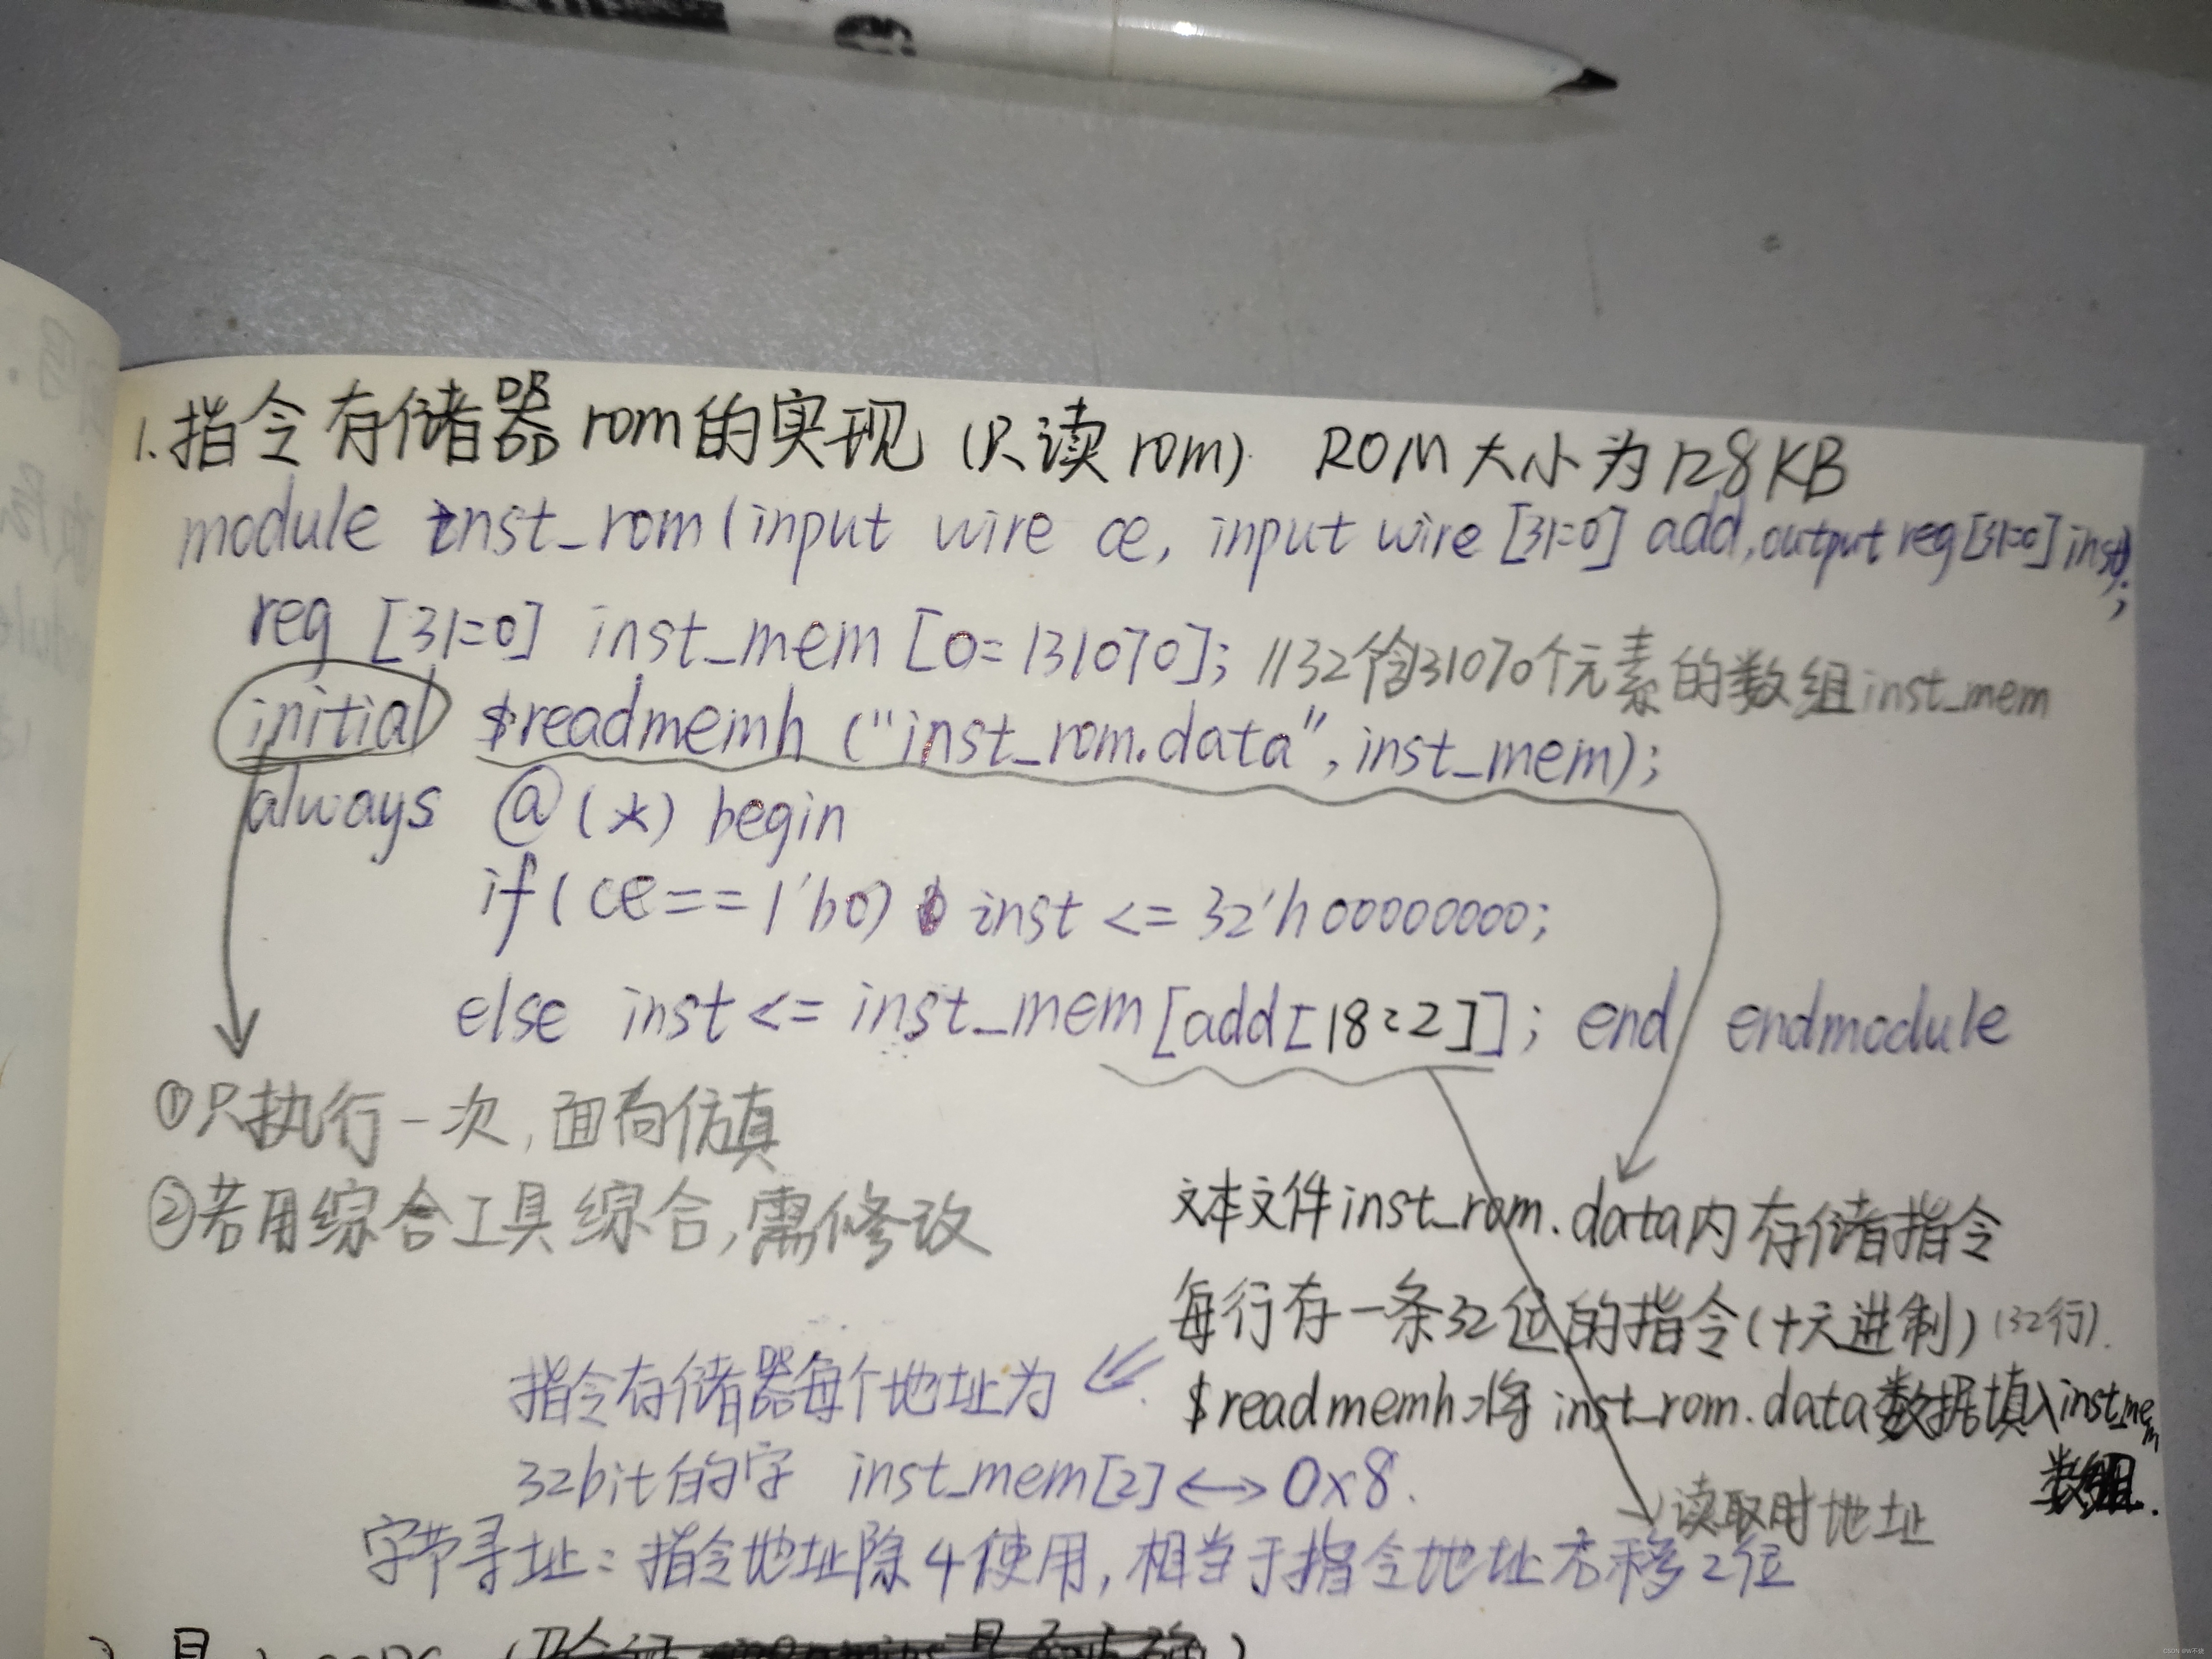 1.指令存储器rom的实现(只读rom). ROM大小为128KB
module inst_rom(input wire ce, input wire [31:0] add,output reg[31:0] inst);
reg [31:0] inst_mem [0:131070]; //32个含31070个元素的数组inst_mem
initial $readmemh ("inst_rom.data", inst_mem);
always @(*) begin
if(ce==1'b0) inst <= 32'h00000000;
else inst <= inst_mem[add[18:2]]; end endmodule
①只执行一次,面向仿真
②若用综合工具综合,需修改
文本文件inst_rom.data内存储指令
每行存一条32位的指令(十六进制)(32行).
$readmemh将inst_rom.data数据填入inst_mem
数组.
指令存储器每个地址为
32bit的字 inst_mem[2]↔0x8.
→读取时地址
字节寻址:指令地址除4使用,相当于指令地址右移2位
CSDN